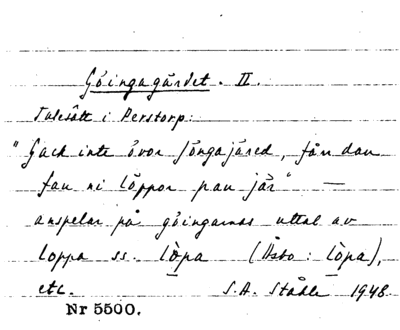 Göingagärdet. II.
Talesätt i Perstorp:
"Gack inte övor jöngajäred, får dan
fau ni löppor pau jär" —
anspelar på göingarnas uttal av
loppa ss. löpa (Åsbo: löpa),
etc. S.A. Ståhle 1948
Nr 5500.